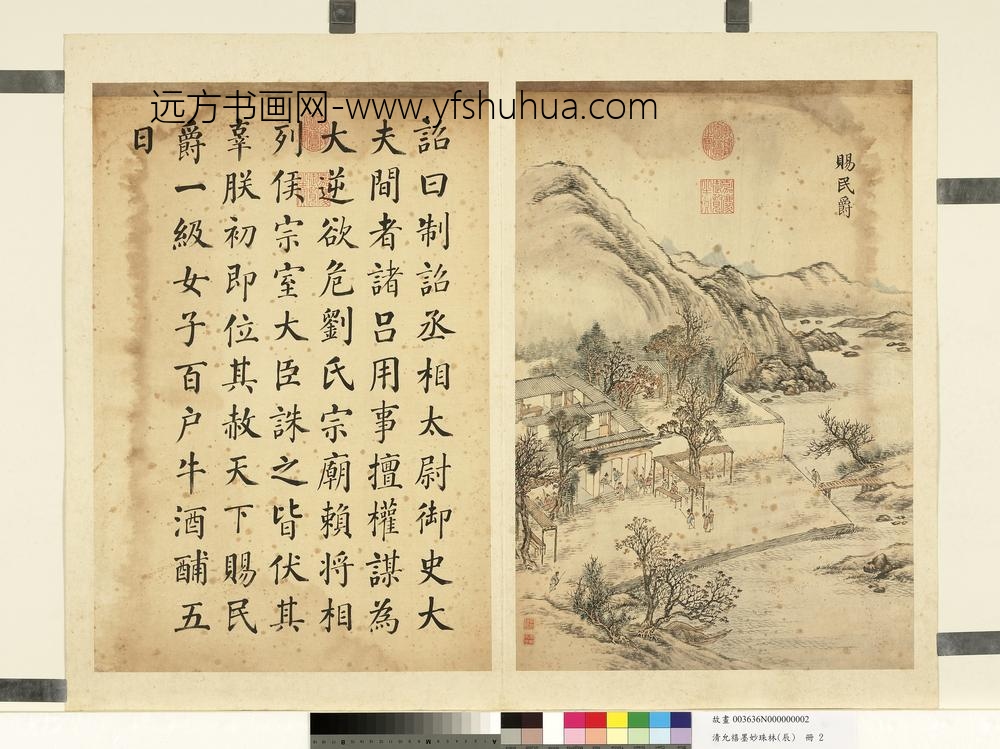 远方书画网-www.yfshuhua.com
賜民爵
詔曰制詔丞相太尉御史大
夫間者諸呂用事擅權謀為
大逆欲危劉氏宗廟賴將相
列侯宗室大臣誅之皆伏其
辜朕初即位其赦天下賜民
爵一級女子百户牛酒酺五
日
故畫 003636N000000002
清允禧墨妙珠林(辰) 冊 2